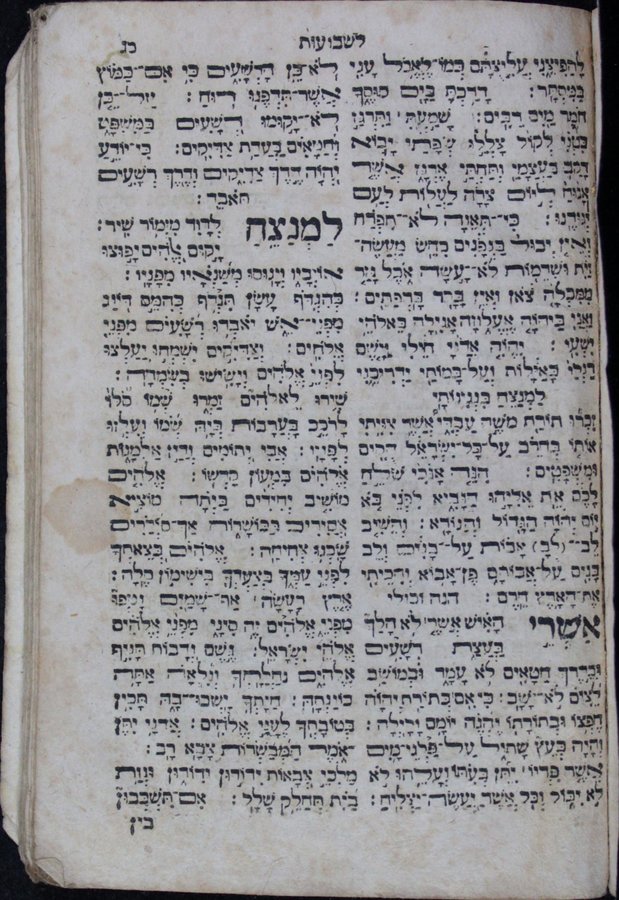 לשבועות
כג
להפיצני עליצתם כמו־לאכל עני
במסתר: דרכת בים סוסך
חמר מים רבים: שמעתי ותרגז
בטני לקול צללו שפתי יבוא
רקב בעצמי ותחתי ארגז אשר
אנוח ליום צרה לעלות לעם
יגודנו: כי־תאנה לא־תפרח
ואין יבול בגפנים כחש מעשה־
זית ושדמות לא־עשה אכל גזר
ממכלה צאן ואין בקר ברפתים:
ואני ביהוה אעלוזה אגילה באלהי
ישעי: יהוה אדני חילי וישם
רגלי כאילות ועל־במותי ידריכני
למנצח בנגינותי:
זכרו תורת משה עבדי אשר צויתי
אותו בחרב על־כל־ישראל חקים
ומשפטים: הנה אנכי שלח
לכם את אליהו הנביא לפני בא
יום יהוה הגדול והנורא: והשיב
לב־(לב) אבות על־בנים ולב
בנים על־אבותם פן־אבוא והכיתי
את־הארץ חרם: הנה וכולי
אשרי האיש אשר לא הלך
בעצת רשעים
ובדרך חטאים לא עמד ובמושב
לצים לא־ישב: כי אם בתורת יהוה
חפצו ובתורתו יהגה יומם ולילה:
והיה כעץ שתול על־פלגי־מים
אשר פריו יתן בעתו ועלהו לא
לא יבול וכל אשר יעשה־יצליח:
לא־כן הרשעים כי אם־כמוץ
אשר־תדפנו רוח: על־כן
לא־יקומו רשעים במשפט
וחטאים בעדת צדיקים: כי־יודע
יהוה דרך צדיקים ודרך רשעים
תאבד:
למנצח לדוד מזמור שיר:
יקום אלהים יפוצו
אויביו וינוסו משנאיו מפניו:
כהנדף עשן תנדף כהמס דונג
מפני־אש יאבדו רשעים מפני
אלהים: וצדיקים ישמחו יעלצו
לפני אלהים וישישו בשמחה:
שירו לאלהים זמרו שמו סלו
לרכב בערבות ביה שמו ועלזו
לפניו: אבי יתומים ודין אלמנות
אלהים במעון קדשו: אלהים
מושיב יחידים ביתה מוציא
אסירים בכושרות אך־סוררים
שכנו צחיחה: אלהים בצאתך
לפני עמך בצעדך בישימון סלה:
ארץ רעשה אף־שמים נטפו
מפני אלהים זה סיני מפני אלהים
אלהי ישראל: גשם נדבות תניף
אלהים נחלתך ונלאה אתה
כוננתה: חיתך ישבו־בה תכין
בטובתך לעני אלהים: אדני יתן
־אמר המבשרות צבא רב:
מלכי צבאות ידודון ידודון ונות
בית תחלק שלל: אם־תשכבון
בין